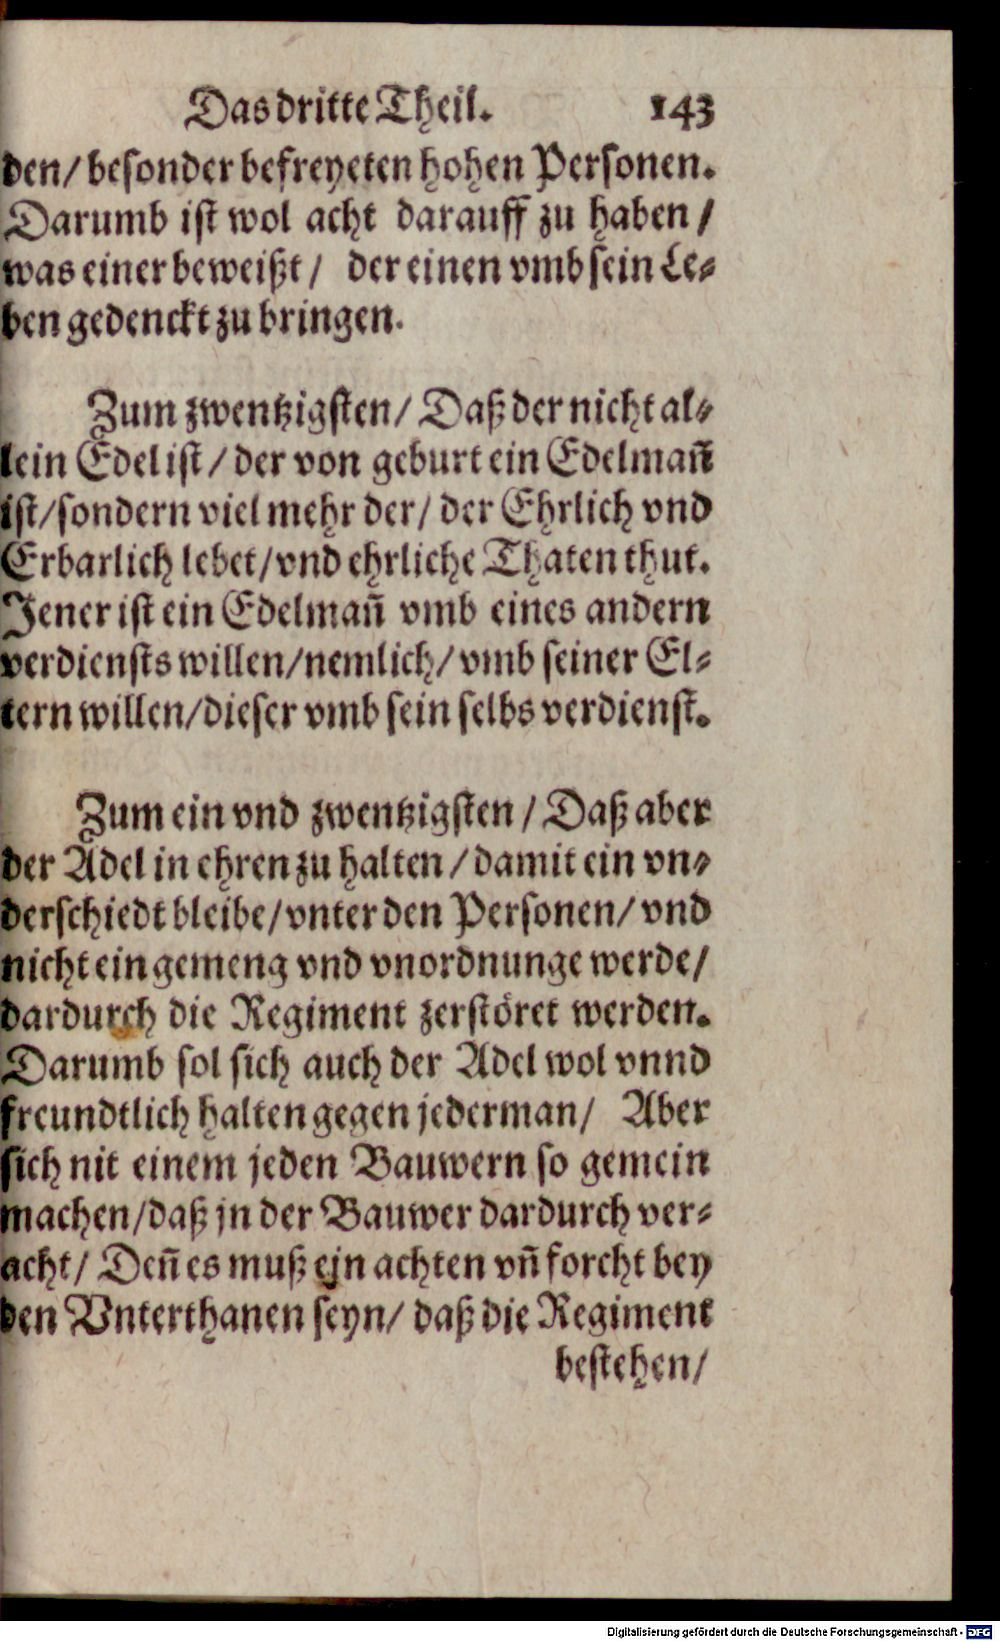 Das dritte Theil. 143
den/ besonder befreyeten hohen Personen.
Darumb ist wol acht darauff zu haben/
was einer beweißt/ der einen vmb sein Le-
ben gedenckt zu bringen.
Zum zwentzigsten/ Daß der nicht al-
lein Edel ist/ der von geburt ein Edelmañ
ist/ sondern viel mehr der/ der Ehrlich vnd
Erbarlich lebet/ vnd ehrliche Thaten thut.
Jener ist ein Edelmañ vmb eines andern
verdiensts willen/ nemlich/ vmb seiner El-
tern willen/ dieser vmb sein selbs verdienst.
Zum ein vnd zwentzigsten/ Daß aber
der Adel in ehren zu halten/ damit ein vn-
derschiedt bleibe/ vnter den Personen/ vnd
nicht ein gemeng vnd vnordnunge werde/
dardurch die Regiment zerstöret werden.
Darumb sol sich auch der Adel wol vnnd
freundtlich halten gegen jederman/ Aber
sich nit einem jeden Bauwern so gemein
machen/ daß jn der Bauwer dardurch ver-
acht/ Deñ es muß ejn achten vñ forcht bey
den Vnterthanen seyn/ daß die Regiment
bestehen/
Digitalisierung gefördert durch die Deutsche Forschungsgemeinschaft - DFG